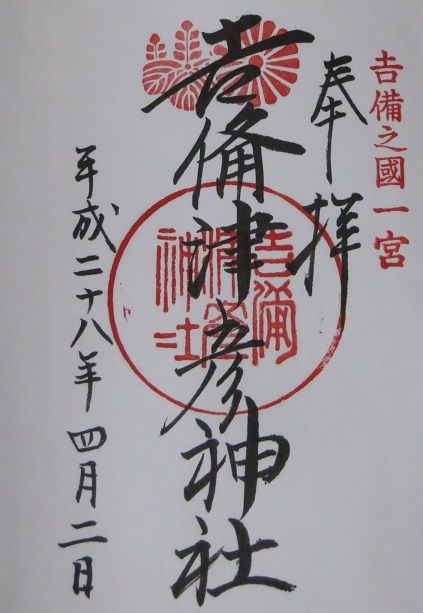 吉備之國一宮
奉拝
吉備津彦神社
吉備
津彦
神社
平成二十八年四月二日